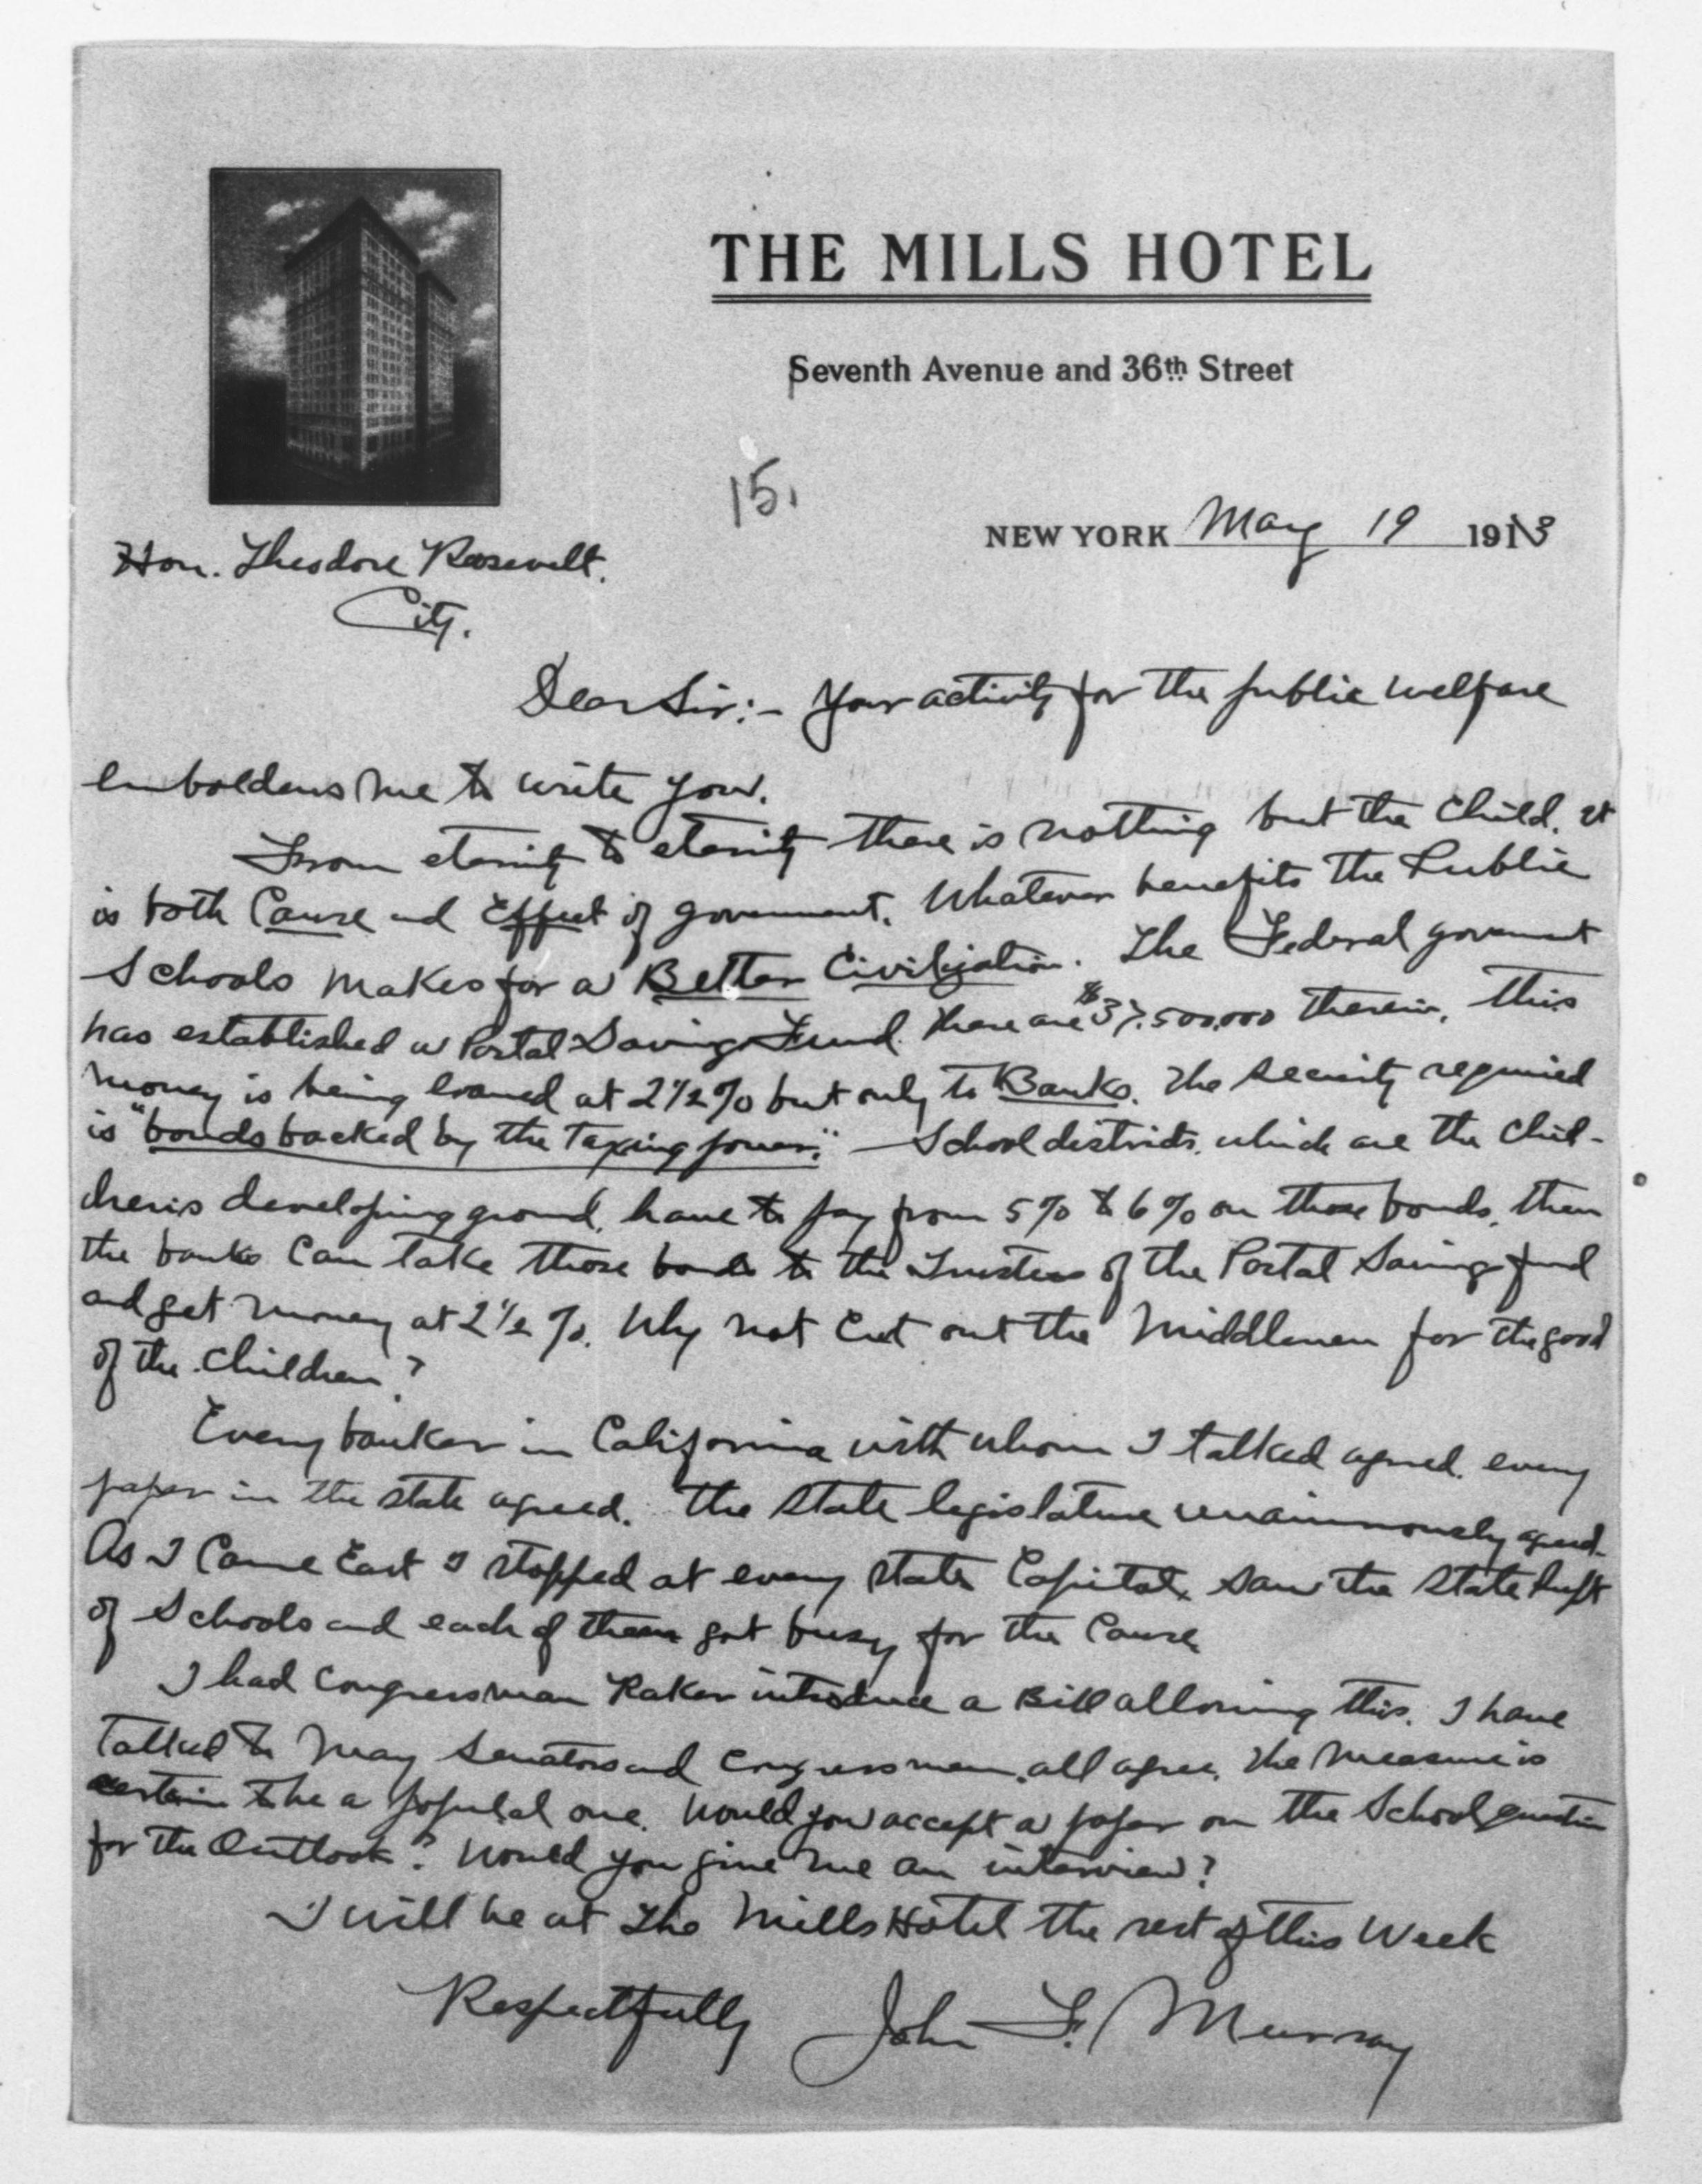 THE MILLS HOTEL
Seventh Avenue and 36th Street
15.
NEW YORK May 19 1913
Hon. Theodore Roosevelt.
City.
Dear Sir:- Your activity for the public welfare
emboldens me to write you.
From eternity to eternity there is nothing but the child. It
is both Cause and Effect of government. Whatever benefits the Public
Schools makes for a Better Civilization. The Federal government
has established a Postal Savings Fund. There are $37.500.000 therein. This
money is being loaned at 2 1/2 % but only to Banks. The security required
is "bonds backed by the taxing power." School districts, which are the chil-
dren's developing ground, have to pay from 5% to 6% on those bonds, then
the banks can take those bonds to the Trustees of the Postal Savings fund
and get money at 2 1/2 %. Why not cut out the Middlemen for the good
of the children?
Every banker in California with whom I talked agreed. every
paper in the state agreed. The State legislature unanimously agreed.
As I came East I stopped at every state Capital, saw the State Supt
of Schools and each of them got busy for the Cause.
I had Congressman Raker introduce a Bill allowing this. I have
talked to many Senators and Congressmen, all agree. The measure is
certain to be a popular one. Would you accept a paper on the School question
for the Outlook? Would you give me an interview?
I will be at The Mills Hotel the rest of this Week
Respectfully John F. Murray